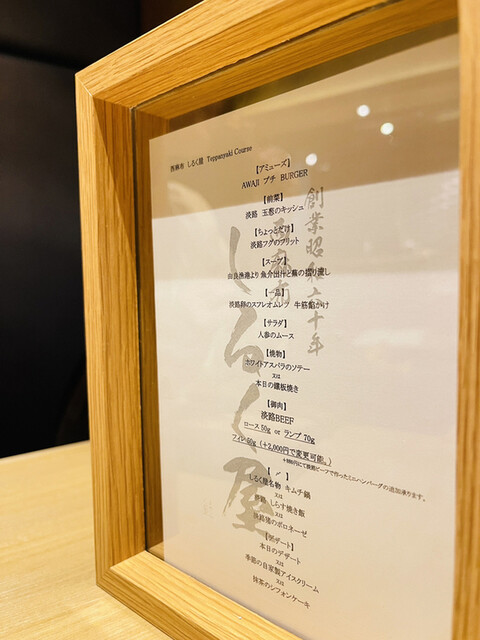 西麻布 しるく屋 Teppanyaki Course
【アミューズ】
AWAJI プチ BURGER
【前菜】
淡路 玉葱のキッシュ
【ちょっとだけ】
淡路フグのフリット
【スープ】
由良漁港より 魚介出汁と蕪の摺り流し
【一品】
淡路鶏のスフレオムレツ 牛筋餡かけ
【サラダ】
人参のムース
【焼物】
ホワイトアスパラのソテー
又は
本日の鐵板焼き
【御肉】
淡路BEEF
ロース 50g or ランプ 70g
フィレ 50g（+2,000円で変更可能。）
+880円にて淡路ビーフで作ったミニハンバーグの追加承ります。
【〆】
しるく屋名物 キムチ鍋
又は
淡路 しらす焼き飯
又は
淡路鶏のボロネーゼ
【デザート】
本日のデザート
又は
季節の自家製アイスクリーム
又は
抹茶のシフォンケーキ
創業昭和六十年
西麻布
しるく屋